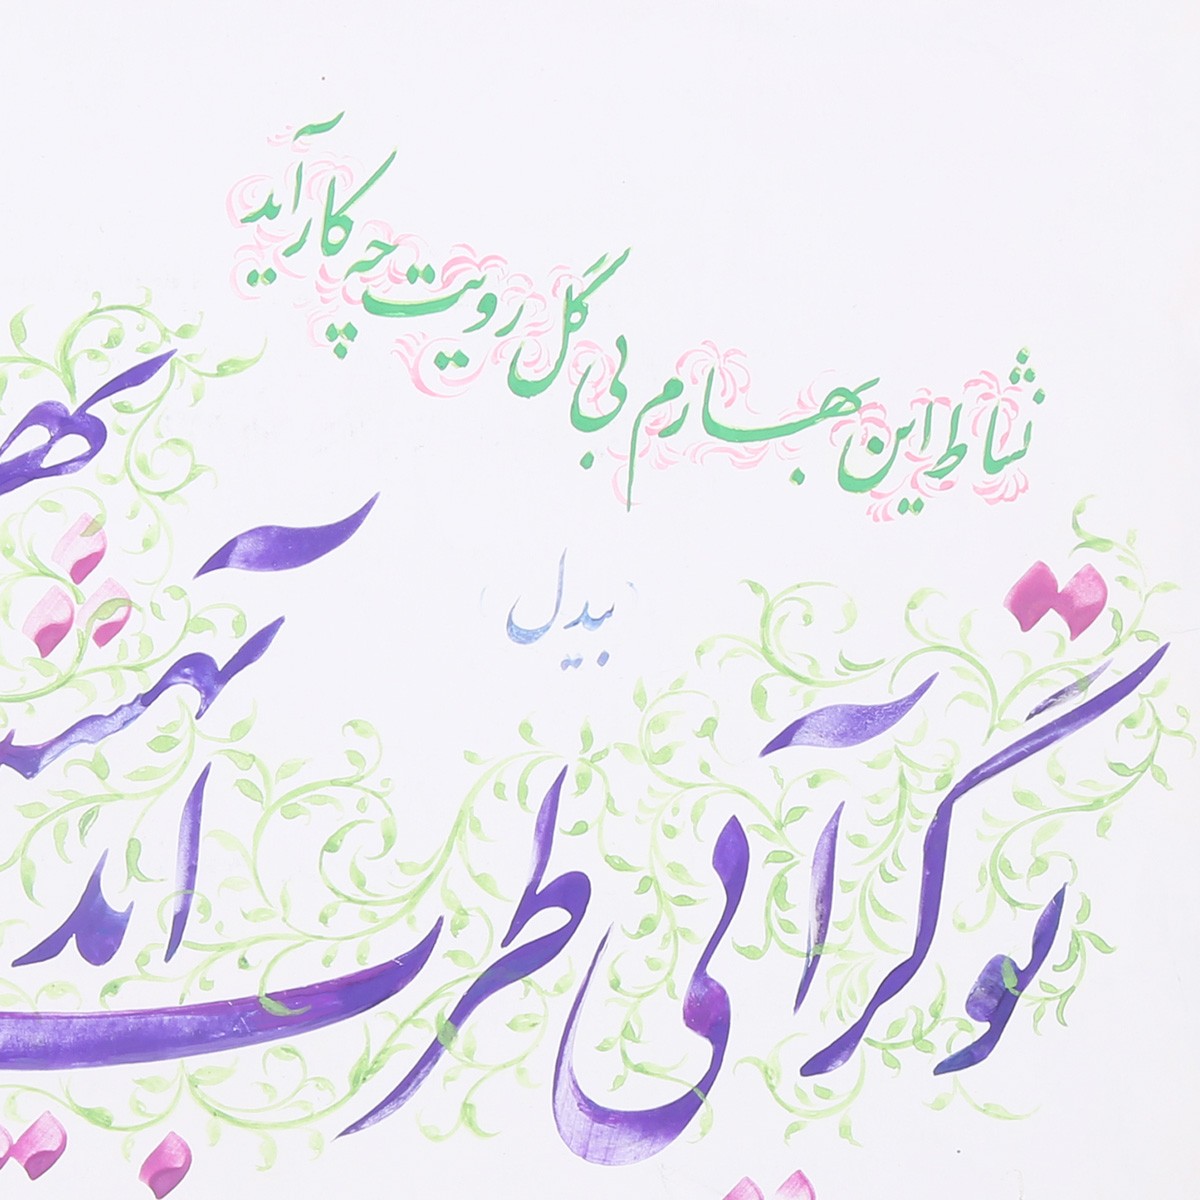 نشاط این بهارم بی گل رویت چه کار آید
بیدل
تو گر آئی طرب آید بهشت آید